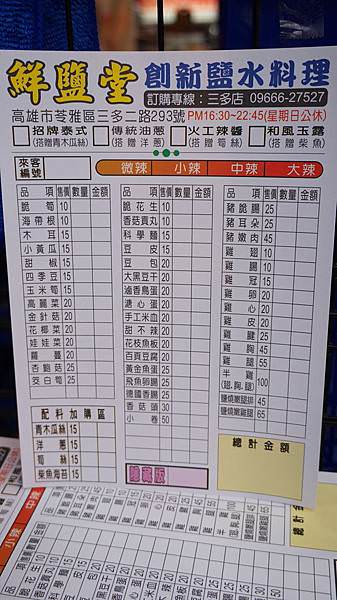 鮮鹽堂 創新鹽水料理
訂購專線：三多店 09666-27527
高雄市苓雅區三多二路293號 PM16:30~22:45(星期日公休)
招牌泰式 (搭贈青木瓜絲)
傳統油蔥 (搭贈洋蔥)
火工辣醬 (搭贈筍絲)
和風玉露 (搭贈柴魚)
來客編號
微辣 小辣 中辣 大辣
品項 售價 數量 金額
脆筍 10
海帶根 10
木耳 15
小黃瓜 15
甜椒 15
四季豆 15
玉米筍 20
高麗菜 20
金針菇 20
花椰菜 20
娃娃菜 20
蘿蔔 20
杏鮑菇 25
茭白筍 25
配料加購區
青木瓜絲 15
洋蔥 15
筍絲 15
柴魚海苔 15
品項 售價 數量 金額
脆花生 10
香菇貢丸 10
科學麵 15
豆皮 15
豆包 20
大黑豆干 20
滷香鳥蛋 20
溏心蛋 20
手工米血 20
甜不辣 20
花枝魚板 20
百頁豆腐 20
黃金魚蛋 25
飛魚卵腸 25
德國香腸 25
香菇頭 30
小卷 50
隱藏版
品項 售價 數量 金額
豬脆腸 25
豬耳朵 25
豬嫩肉 45
雞翅 10
雞腸 10
雞冠 15
雞卵 20
雞心 20
雞皮 20
雞腱 25
雞胸 45
雞腿 55
半雞 (翅.胸.腿) 100
鹽燒嫩雞排 45
鹽燒嫩雞腿 65
總計金額